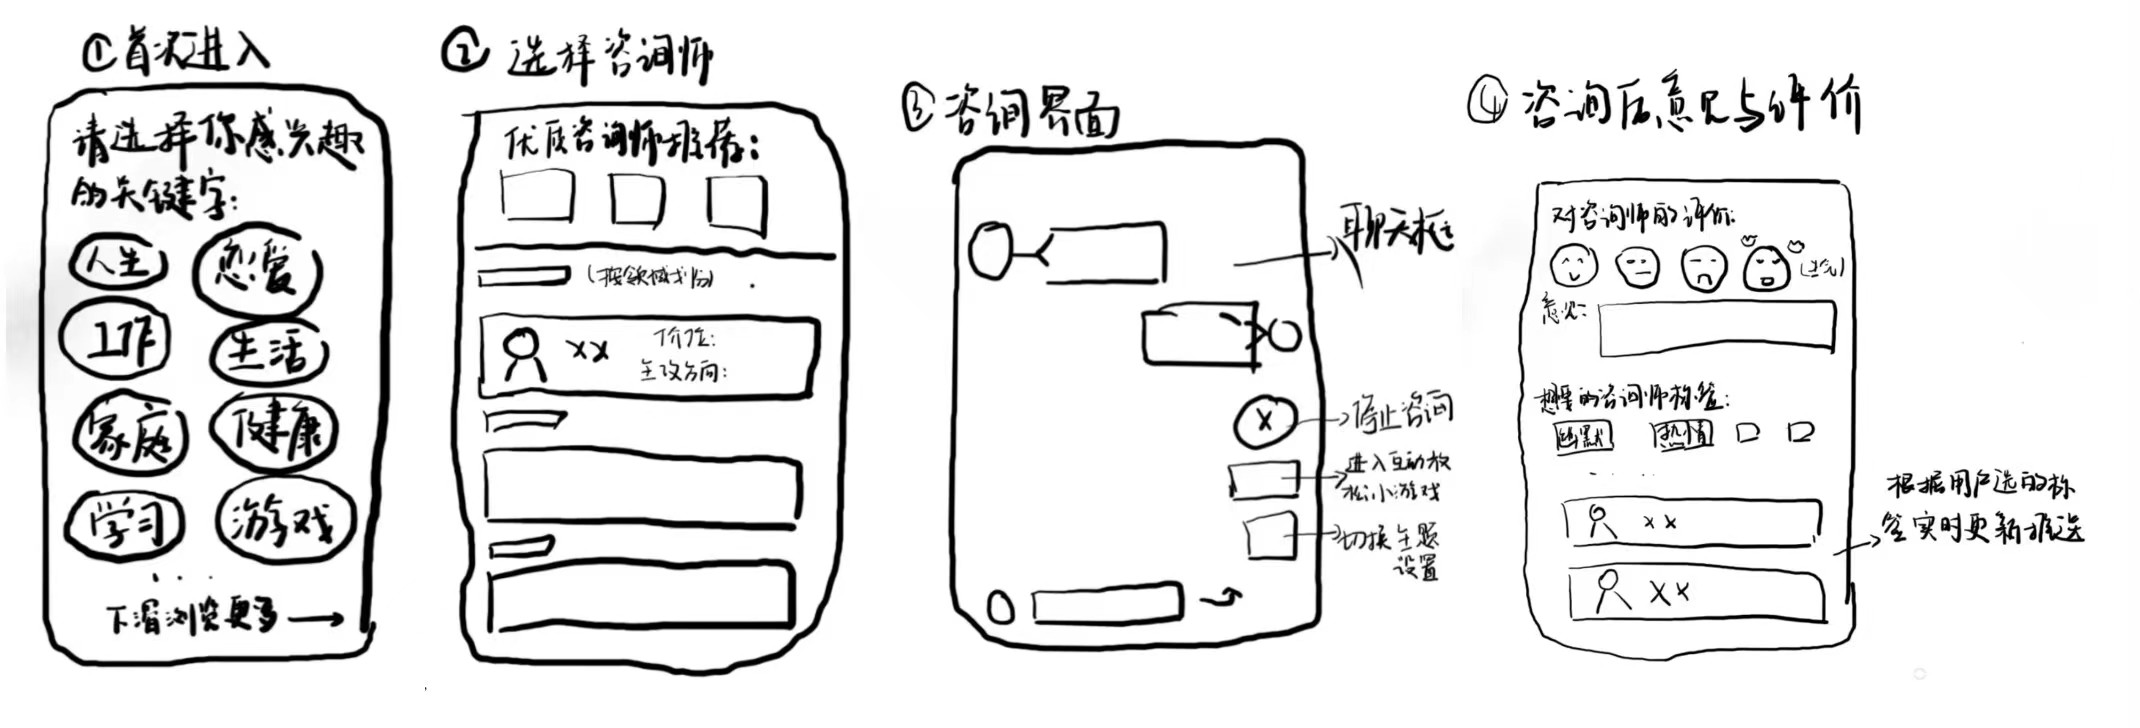 ①首次进入
请选择你感兴趣
的关键字:
人生
恋爱
工作
生活
家庭
健康
学习
游戏
· · ·
下滑浏览更多→
② 选择咨询师
优质咨询师推荐:
(按领域划分)
XX
价位:
主攻方向:
③咨询界面
聊天框
X
停止咨询
进入互动放
松小游戏
切换主题
设置
④咨询后意见与评价
对咨询师的评价:
(生气)
意见:
想要的咨询师标签:
幽默
热情
· · · ·
XX
XX
根据用户选的标
签实时更新推送